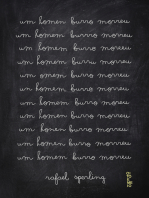 um homem burro morreu
um homem burro morreu
um homem burro moreu
um homem burru morreu
um omem burro morreu
um homem burro morreu
um homem burro morreu
um homem burro morreu
um homem burro morreu
um honen burro morreu
um homem burro morreu
rafael sperling